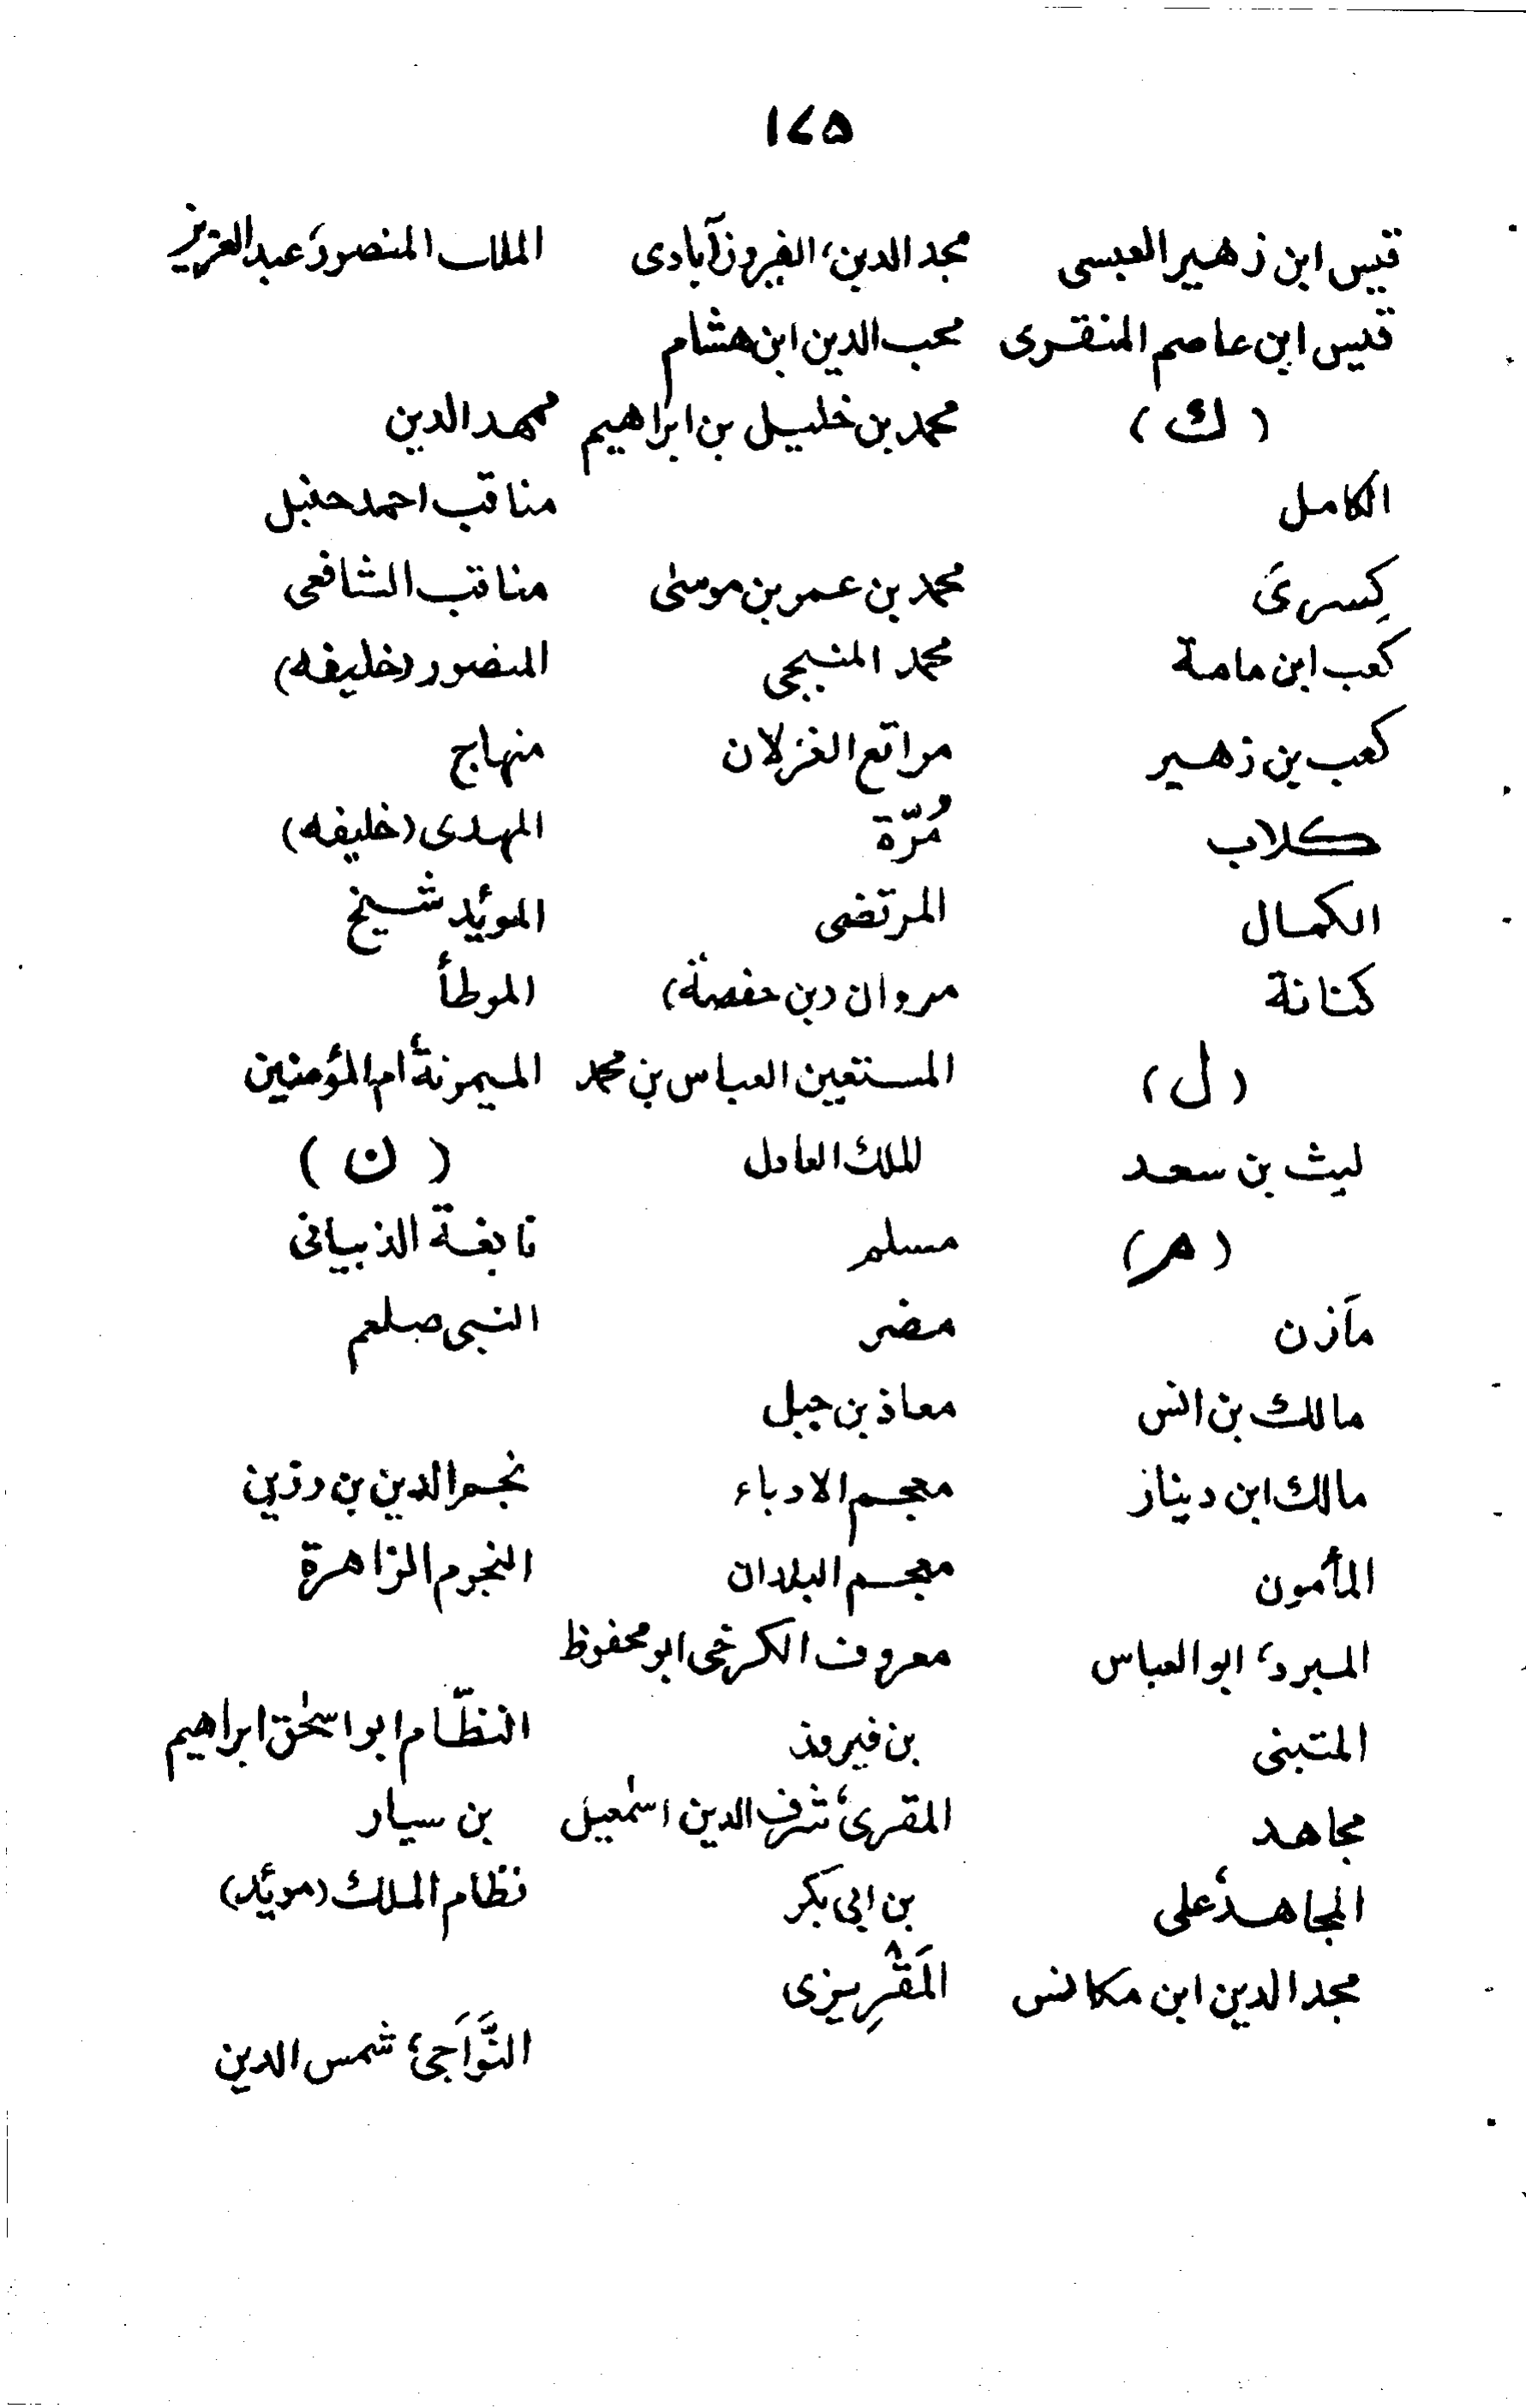 ۱۷۵
قيس ابن زهير العبسى
قيس ابن عاصم المنقرى
(ك)
الكامل
كِسرىَ
كعب ابن مامة
كعب بن زهير
كلاب
الكمال
كنانة
(ل)
ليث بن سعد
(مر)
مآزن
مالك بن انس
مالك ابن ديناز
المأمون
المبرد، ابو العباس
المتبنى
مجاهد
المجاهد، على
مجد الدين ابن مكانس
مجد الدين، الفيروزآبادى
محب الدين ابن هشام
محمد بن خليل بن ابراهيم
محمد بن عمر بن موسىٰ
محمد المنبجى
مراتع الغزلان
مُرّة
المرتضى
مروان (بن حفصة)
المستعين العباس بن محمد
الملك العادل
مسلم
مضر
معاذ بن جبل
معجم الادباء
معجم البلدان
معروف الكرخى ابو محفوظ
بن فيروز
المقرى، شرف الدين اسمٰعيل
بن ابى بكر
المَقْرِيزى
الملك المنصور، عبد العزيز
ممهد الدين
مناقب احمد حنبل
مناقب الشافعى
المنصور (خليفه)
منهاج
المهدى (خليفه)
المؤيد شيخ
الموطأ
الميمونة، ام المؤمنين
(ن)
نابغة الذبيانى
النبى صلعم
نجم الدين بن رزين
النجوم الزاهرة
النظّام ابو اسحٰق ابراهيم
بن سيار
نظام الملك (مويُد)
النَّوَاجى، شمس الدين